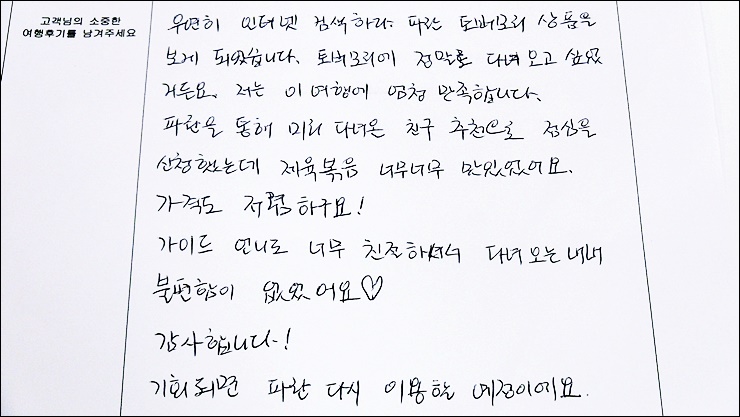 고객님의 소중한
여행후기를 남겨주세요
우연히 인터넷 검색하다 파란 토버모리 상품을
보게 되었습니다. 토버모리에 정말로 다녀 오고 싶었
거든요. 저는 이 여행에 엄청 만족합니다.
파란을 통해 미리 다녀온 친구 추천으로 점심을
신청했는데 제육볶음 너무너무 맛있었어요.
가격도 저렴하구요!
가이드 언니도 너무 친절하셔서 다녀 오는 내내
불편함이 없었어요♡
감사합니다!
기회되면 파란 다시 이용할 예정이에요.